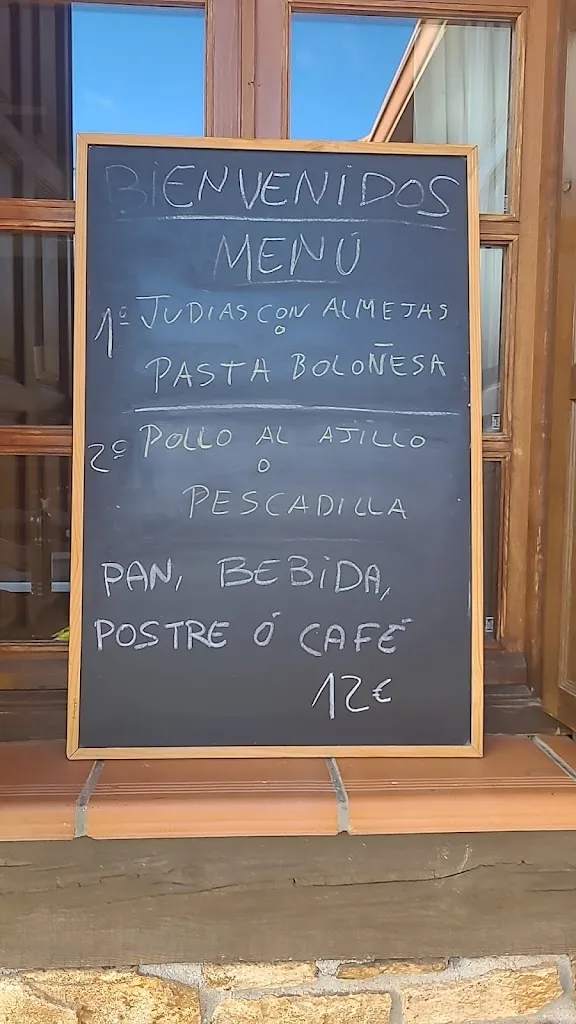 BIENVENIDOS
MENÚ
1º JUDIAS CON ALMEJAS
o
PASTA BOLOÑESA
2º POLLO AL AJILLO
o
PESCADILLA
PAN, BEBIDA,
POSTRE Ó CAFÉ
12€